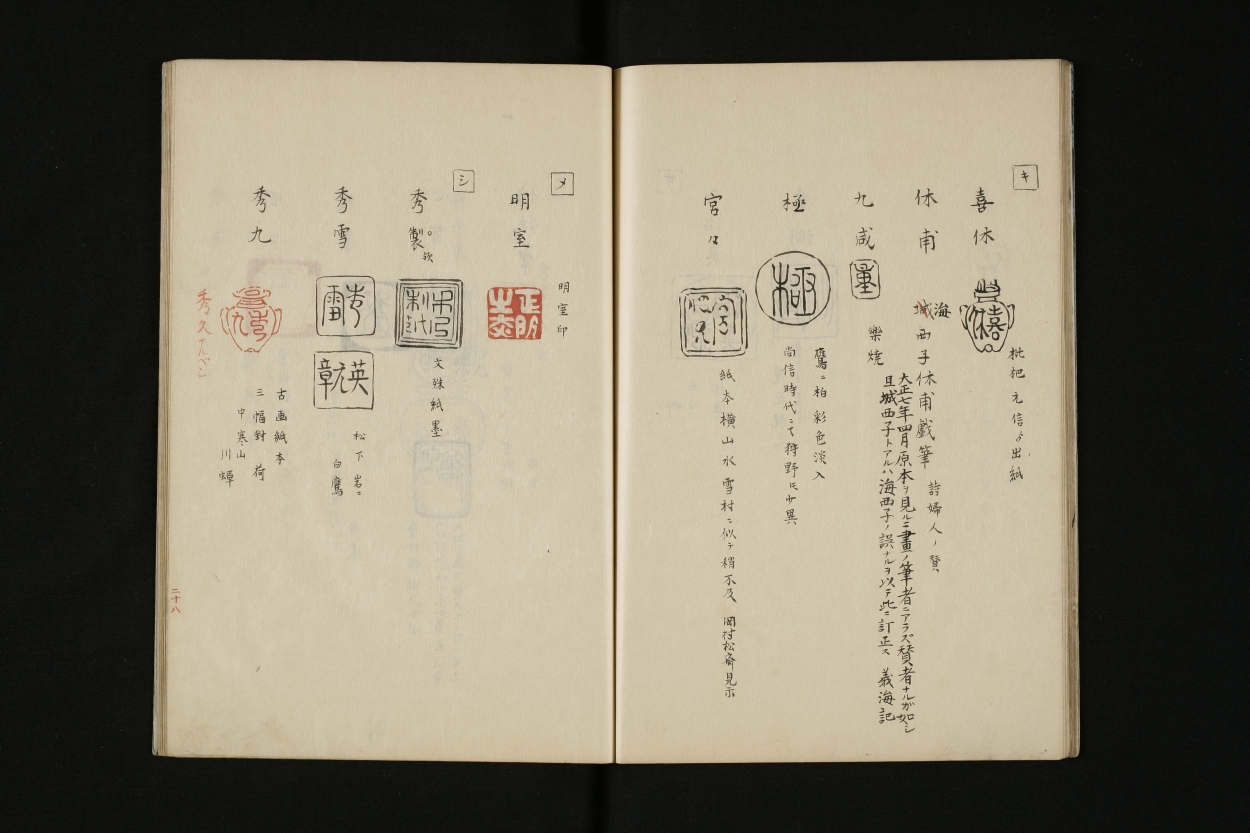 キ
喜休
枇杷 元信ヨ出紙
休甫
海
城西子休甫戯筆 詩婦人ノ賛
大正七年四月原本ヲ見ルニ畫ノ筆者ニアラズ賛者ナルガ如シ
且城西子トアルハ海西子ノ誤ナルヲ以テ此ニ訂正ス 義海記
九咸
樂焼
極
極
鷹ニ柏彩色淡入
尚信時代ニテ狩野氏少異
宮々
紙本横山水雪村ニ似テ稍不及 岡村松斎見示
メ
明室
明室印
シ
秀製
文殊紙墨
秀雪
松下岩ニ
白鷹
秀九
秀久ナルベシ
古画紙本
三幅對 荷
中寒山
川蝉
二十八